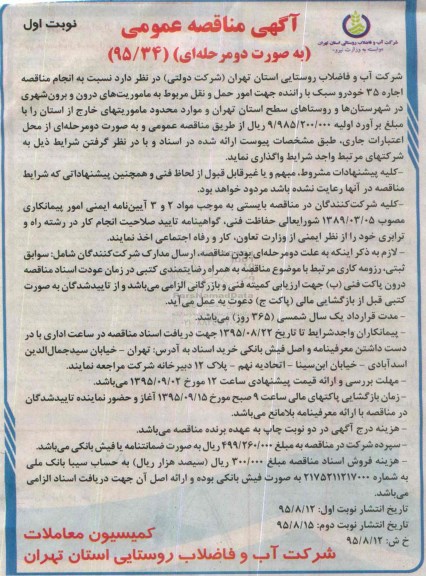 آگهی مناقصه عمومی
نوبت اول
(به صورت دومرحله‌ای) (۹۵/۳۴)
شرکت آب و فاضلاب روستایی استان تهران
وابسته به وزارت نیرو
شرکت آب و فاضلاب روستایی استان تهران (شرکت دولتی) در نظر دارد نسبت به انجام مناقصه
اجاره ۳۵ خودرو سبک با راننده جهت امور حمل و نقل مربوط به ماموریت‌های درون و برون‌شهری
در شهرستان‌ها و روستاهای سطح استان تهران و موارد محدود ماموریتهای خارج از استان را با
مبلغ برآورد اولیه ۹/۹۸۵/۲۰۰/۰۰۰ ریال از طریق مناقصه عمومی و به صورت دومرحله‌ای از محل
اعتبارات جاری، طبق مشخصات پیوست ارائه شده در اسناد و با در نظر گرفتن شرایط ذیل به
شرکتهای مرتبط واجد شرایط واگذاری نماید.
-کلیه پیشنهادات مشروط، مبهم و یا غیرقابل قبول از لحاظ فنی و همچنین پیشنهاداتی که شرایط
مناقصه در آنها رعایت نشده باشد مردود خواهد بود.
-کلیه شرکت‌کنندگان در مناقصه بایستی به موجب مواد ۲ و ۳ آیین‌نامه ایمنی امور پیمانکاری
مصوب ۱۳۸۹/۰۳/۰۵ شورایعالی حفاظت فنی، گواهینامه تایید صلاحیت انجام کار در رشته راه و
ترابری خود را از نظر ایمنی از وزارت تعاون، کار و رفاه اجتماعی اخذ نمایند.
- لازم به ذکر اینکه به علت دومرحله‌ای بودن مناقصه، ارسال مدارک شرکت‌کنندگان شامل: سوابق
ثبتی، رزومه کاری مرتبط با موضوع مناقصه به همراه رضایتمندی کتبی در زمان عودت اسناد مناقصه
درون پاکت فنی (ب) جهت ارزیابی کمیته فنی و بازرگانی الزامی می‌باشد و از تاییدشدگان به صورت
کتبی قبل از بازگشایی مالی (پاکت ج) دعوت به عمل می‌آید.
- مدت قرارداد یک سال شمسی (۳۶۵ روز) می‌باشد.
- پیمانکاران واجدشرایط تا تاریخ ۱۳۹۵/۰۸/۲۲ جهت دریافت اسناد مناقصه در ساعت اداری با در
دست داشتن معرفینامه و اصل فیش بانکی خرید اسناد به آدرس: تهران - خیابان سیدجمال‌الدین
اسدآبادی - خیابان ابن‌سینا - اتحادیه نهم - پلاک ۱۲ دبیرخانه شرکت مراجعه نمایند.
- مهلت بررسی و ارائه قیمت پیشنهادی ساعت ۱۲ مورخ ۱۳۹۵/۰۹/۰۲ می‌باشد.
- زمان بازگشایی پاکتهای مالی ساعت ۹ صبح مورخ ۱۳۹۵/۰۹/۱۵ آغاز و حضور نماینده تاییدشدگان
در مناقصه با ارائه معرفینامه بلامانع می‌باشد.
- هزینه درج آگهی در دو نوبت چاپ به عهده برنده مناقصه می‌باشد.
- سپرده شرکت در مناقصه به مبلغ ۴۹۹/۲۶۰/۰۰۰ ریال به صورت ضمانتنامه یا فیش بانکی می‌باشد.
- هزینه فروش اسناد مناقصه مبلغ ۳۰۰/۰۰۰ ریال (سیصد هزار ریال) به حساب سیبا بانک ملی
به شماره ۲۱۷۵۲۱۱۲۱۷۰۰۰ به صورت فیش بانکی بوده و ارائه اصل آن جهت دریافت اسناد الزامی
می‌باشد.
تاریخ انتشار نوبت اول: ۹۵/۸/۱۲
تاریخ انتشار نوبت دوم: ۹۵/۸/۱۵
خ ش: ۹۵/۸/۱۲
کمیسیون معاملات
شرکت آب و فاضلاب روستایی استان تهران